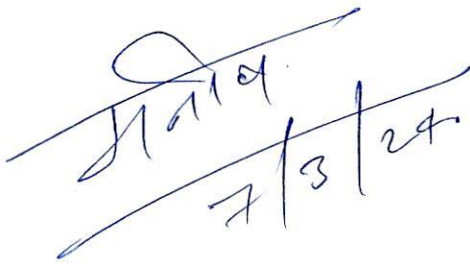 मनीष
7/3/24